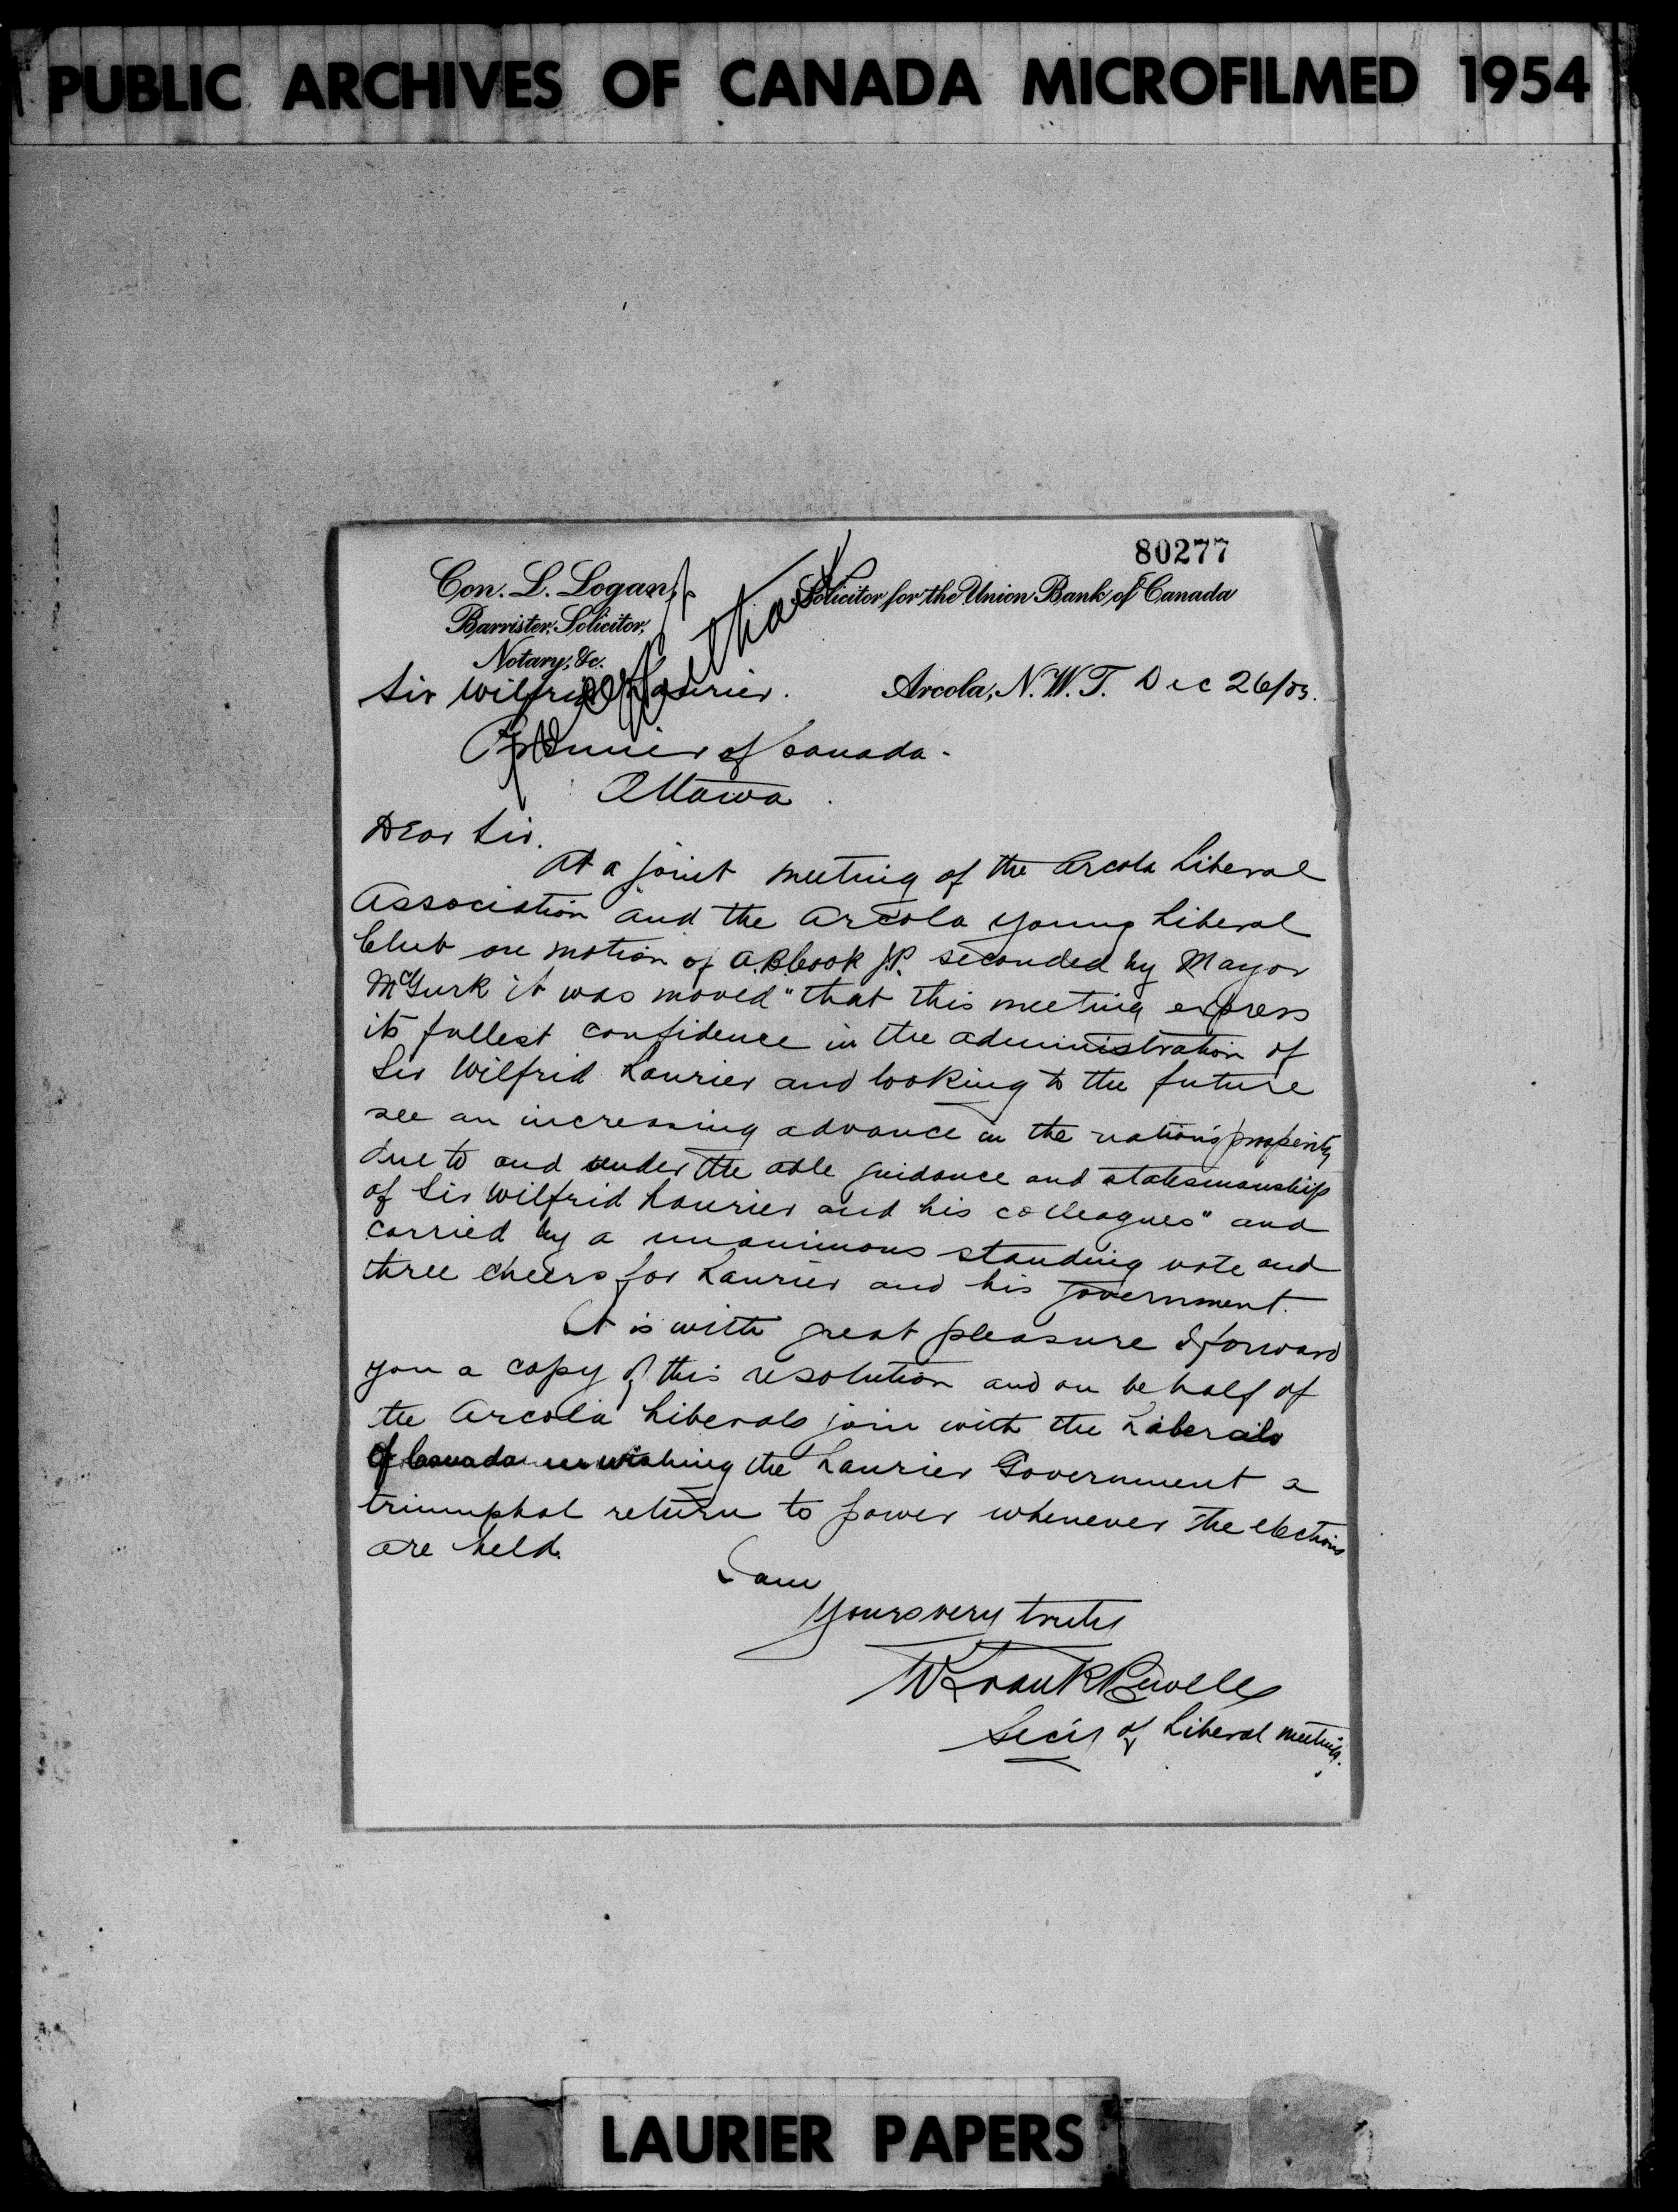 PUBLIC ARCHIVES OF CANADA MICROFILMED 1954
80277
Con. L. Logan,
Barrister, Solicitor,
Notary, &c.
Solicitor for the Union Bank of Canada
thank
Arcola, N.W.T. Dec 26/03.
Sir Wilfrid Laurier.
Premier of Canada.
Ottawa.
Dear Sir.
At a joint meeting of the Arcola Liberal
Association and the Arcola Young Liberal
Club on motion of A.B. Cook J.P. seconded by Mayor
McGurk it was moved "that this meeting express
its fullest confidence in the administration of
Sir Wilfrid Laurier and looking to the future
see an increasing advance in the nation's prosperity
due to and under the able guidance and statesmanship
of Sir Wilfrid Laurier and his colleagues" and
carried by a unanimous standing vote and
three cheers for Laurier and his government.
It is with great pleasure I forward
you a copy of this resolution and on behalf of
the Arcola Liberals join with the Liberals
of Canada in wishing the Laurier Government a
triumphal return to power whenever the elections
are held.
I am
Yours very truly
W Frank
Sec'y of Liberal meeting.
LAURIER PAPERS